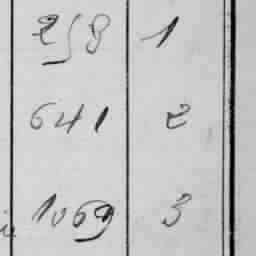 258 1
641 2
1069 3